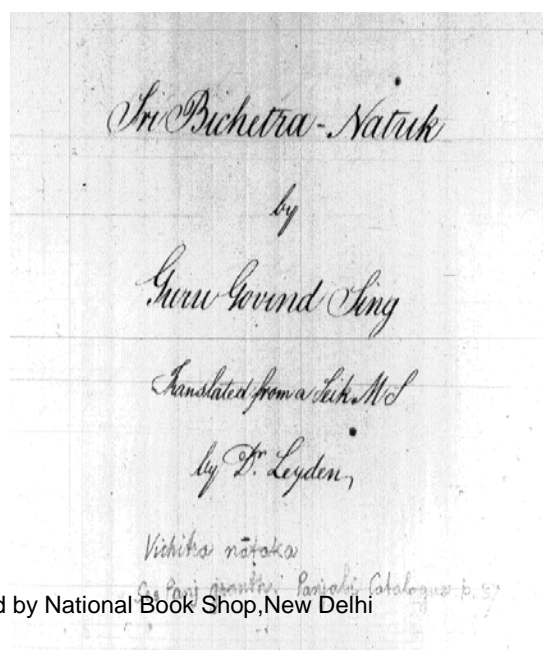 Sri Bichetra-Natuk
by
Guru Govind Sing
Translated from a Seik MS
by Dr. Leyden,
Vichitra nāṭaka
See Panj granthi Panjabi Catalogue p.
d by National Book Shop,New Delhi